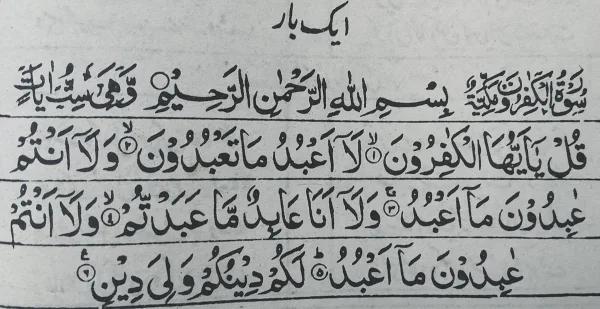 ایک بار
سُوْرَةُ الْكٰفِرُوْنَ مَكِّيَّةٌ بِسْمِ اللّٰهِ الرَّحْمٰنِ الرَّحِيْمِ ○ وَّهِىَ سِتُّ اٰيَاتٍ
قُلْ يٰۤاَيُّهَا الْكٰفِرُوْنَ ۙ﴿۱﴾ لَاۤ اَعْبُدُ مَا تَعْبُدُوْنَ ۙ﴿۲﴾ وَلَاۤ اَنْتُمْ
عٰبِدُوْنَ مَاۤ اَعْبُدُ ۚ﴿۳﴾ وَلَاۤ اَنَا عَابِدٌ مَّا عَبَدْتُّمْ ۙ﴿۴﴾ وَلَاۤ اَنْتُمْ
عٰبِدُوْنَ مَاۤ اَعْبُدُ ؕ﴿۵﴾ لَكُمْ دِيْنُكُمْ وَلِىَ دِيْنِ ﴿۶﴾